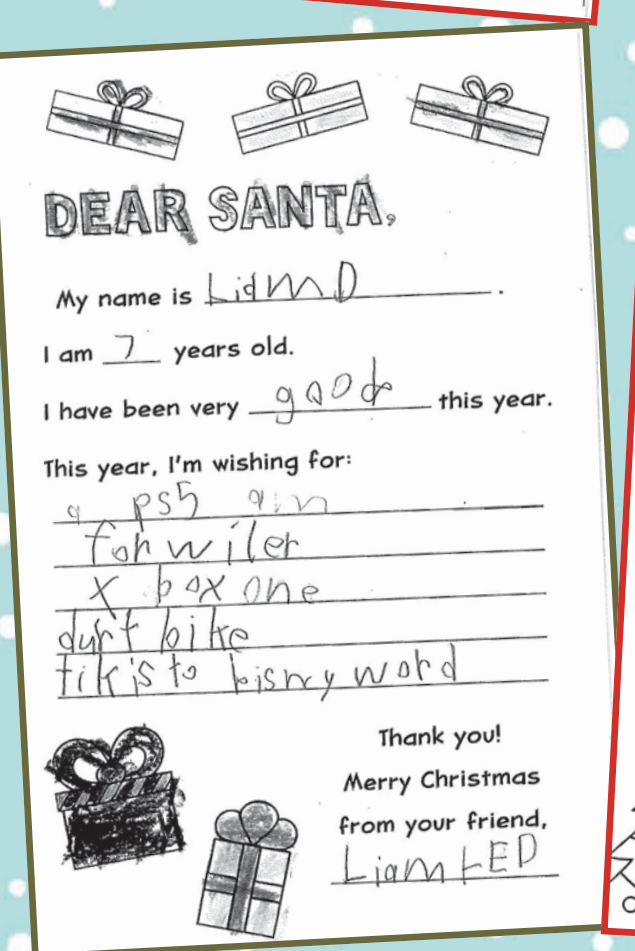 DEAR SANTA,
My name is Liam D.
I am 7 years old.
I have been very good this year.
This year, I'm wishing for:
a ps5 a
forwiler
x box one
durt bike
tikis to bisnyword
Thank you!
Merry Christmas
from your friend,
Liam